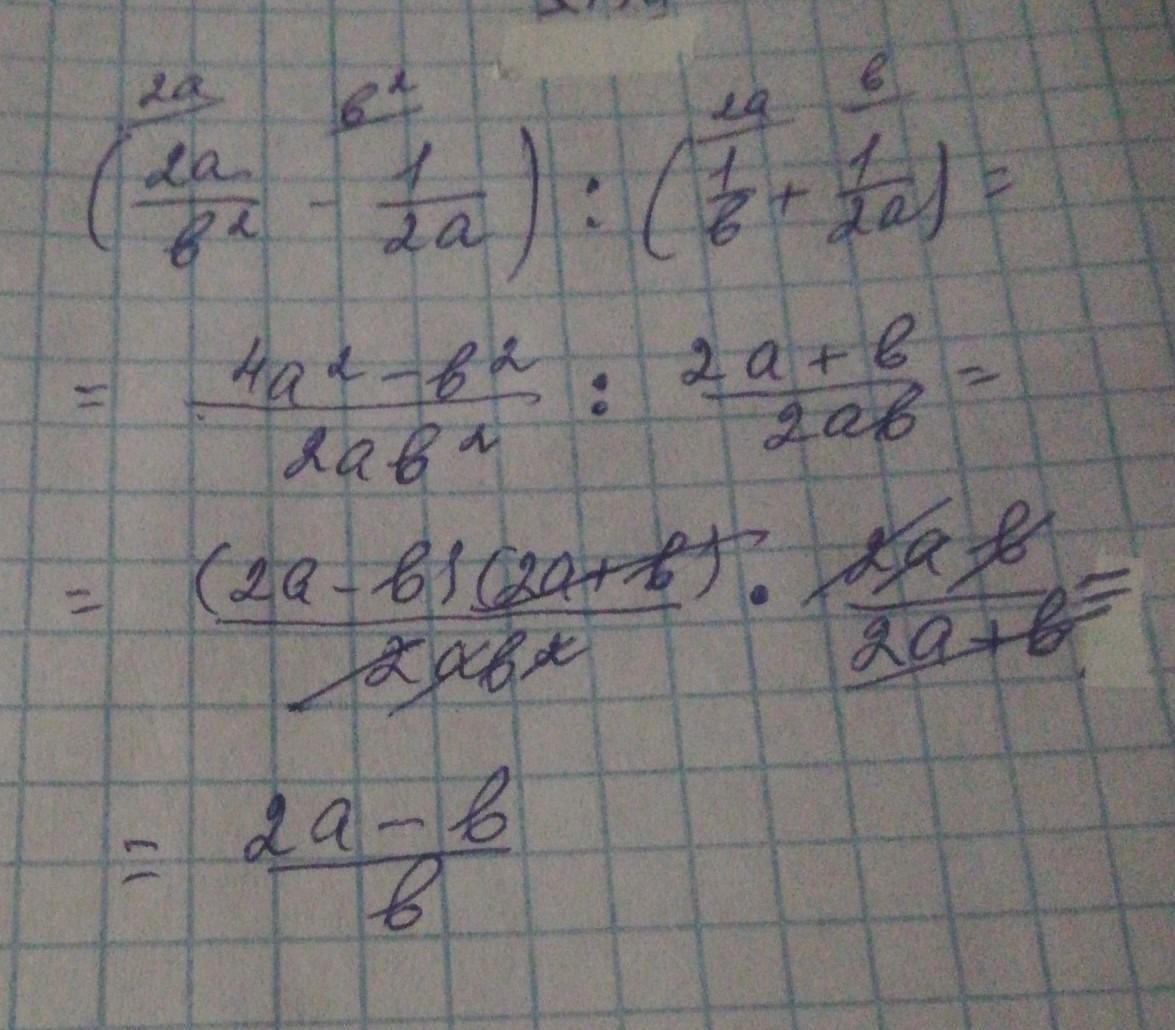 2a b² 2a b
(2a/b² - 1/2a) : (1/b + 1/2a) =
= 4a² - b² / 2ab² : 2a + b / 2ab =
= (2a - b)(2a + b) / 2ab² · 2ab / 2a + b =
= 2a - b / b